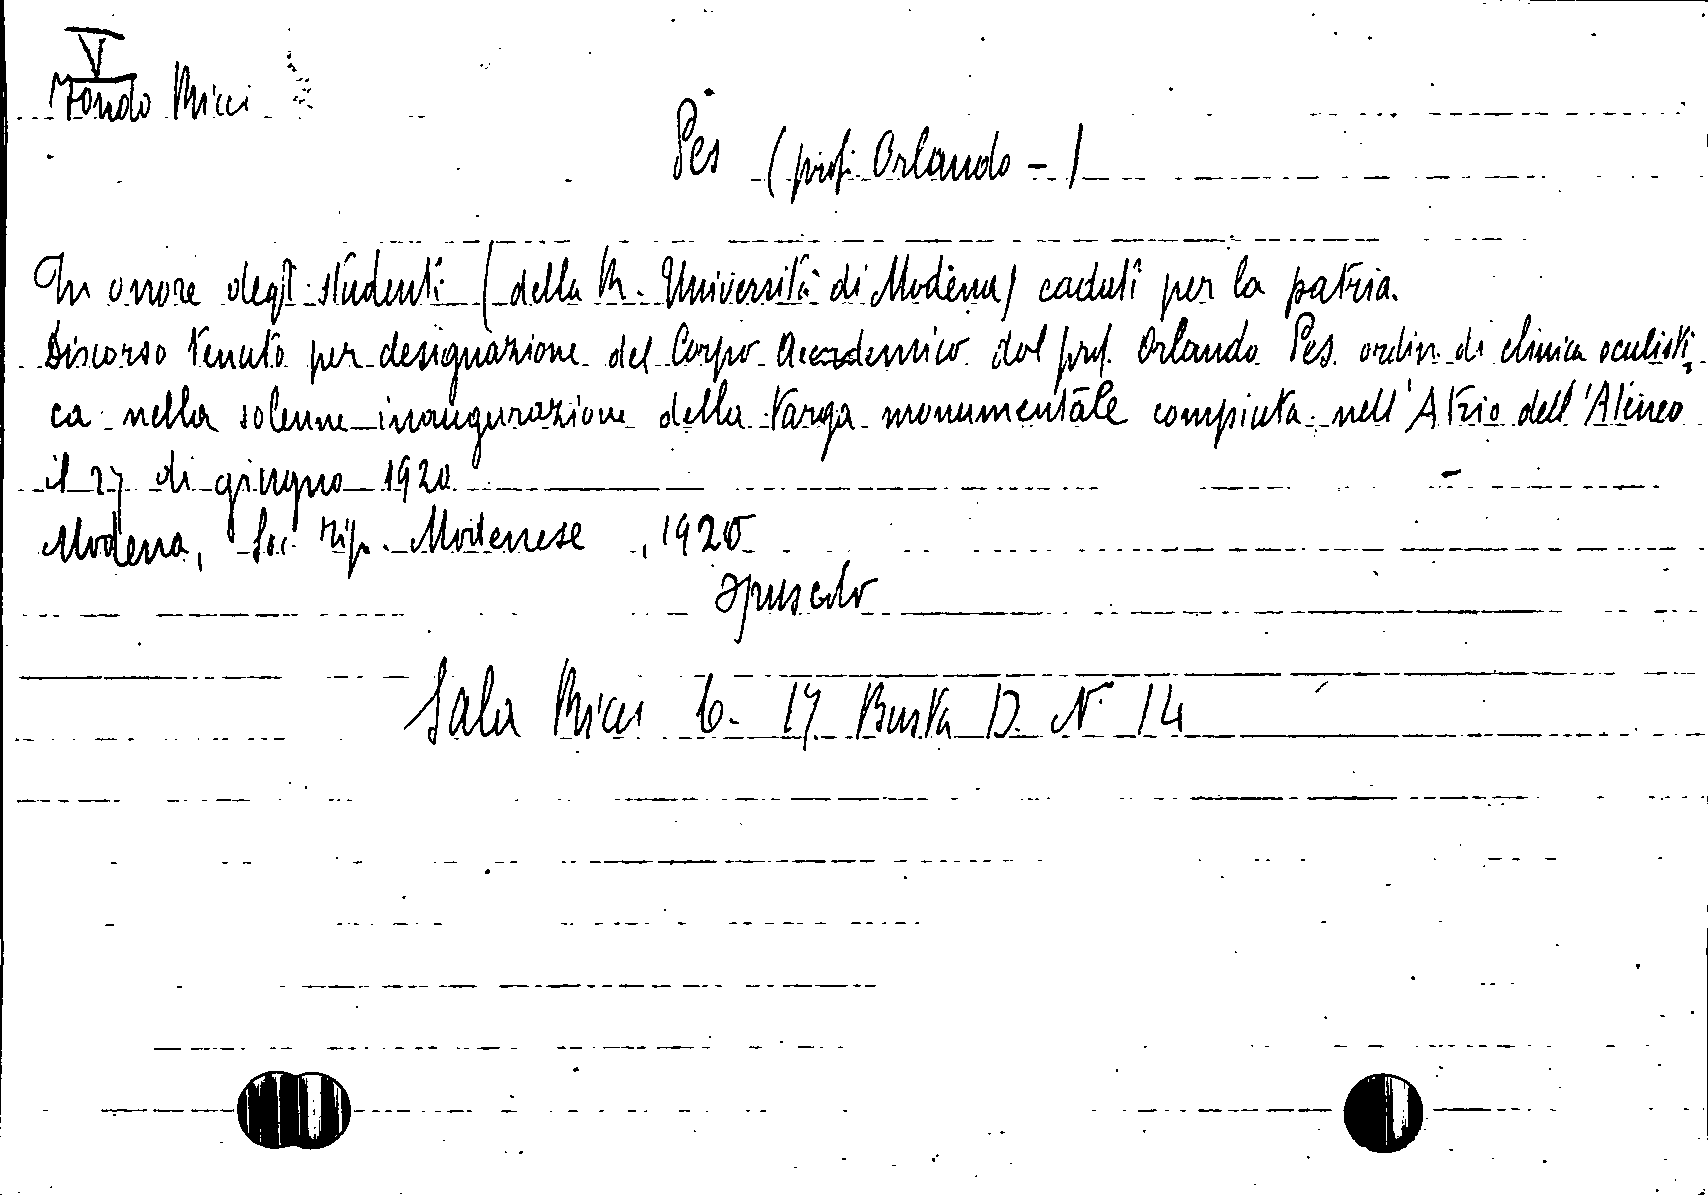 V
Fondo Ricci
Pes (prof. Orlando - )
In onore degli studenti (della R. Università di Modena) caduti per la patria.
Discorso tenuto per designazione del Corpo Accademico dal prof. Orlando Pes ordin. di clinica oculisti-
ca nella solenne inaugurazione della targa monumentale compiuta nell'Atrio dell'Ateneo
il 27 di giugno 1920
Modena, Soc. Tip. Modenese, 1920
opuscolo
Sala Ricci 6. 17 Busta D. N. 14